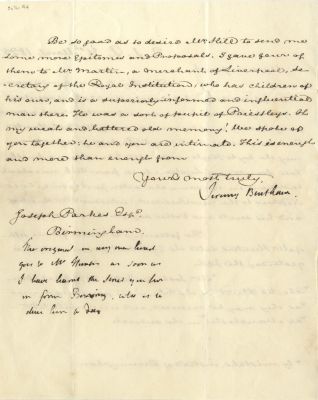 Be so good as to desire Mr Hill to send me
some more Epitomes and Proposals. I gave four of
them to Mr Martin, a merchant of Liverpool, se-
cretary of the Royal Institution, who has children of
his ours, and is a superiorly informed and influential
man there. He was a sort of pupil of Priestleys. Oh
my weak and battered old memory! We spoke of
you together: he and you are intimate. This is enough
and more than enough from
Yours most truly,
Jeremy Bentham.
Joseph Parkes Esqr.
Birmingham.
The original in my own hand
goes to Mr as soon as
I have learnt the street you live
in from Bowring, who is to
dine here to day